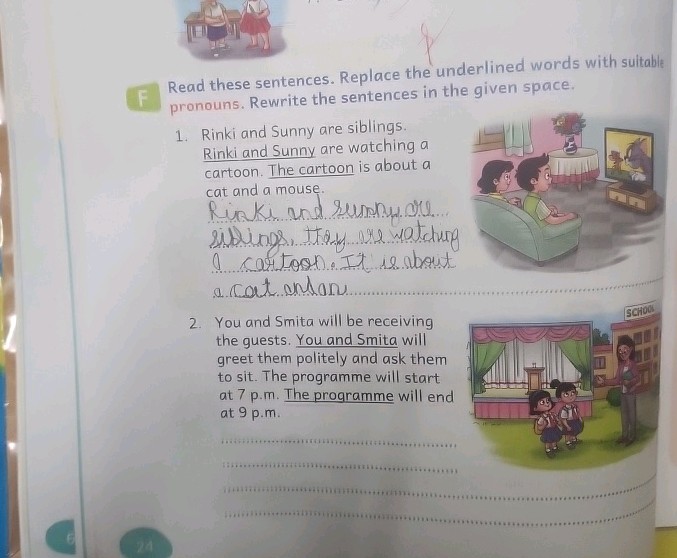 F
Read these sentences. Replace the underlined words with suitable
pronouns. Rewrite the sentences in the given space.
1. Rinki and Sunny are siblings.
Rinki and Sunny are watching a
cartoon. The cartoon is about a
cat and a mouse.
Rinki and Sunny are
siblings. They are watching
a cartoon. It is about
a cat
2. You and Smita will be receiving
the guests. You and Smita will
greet them politely and ask them
to sit. The programme will start
at 7 p.m. The programme will end
at 9 p.m.
SCHOOL
6
24